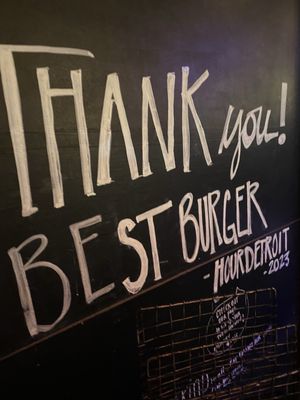 THANK you!
BEST BURGER
- HOUR DETROIT
- 2023